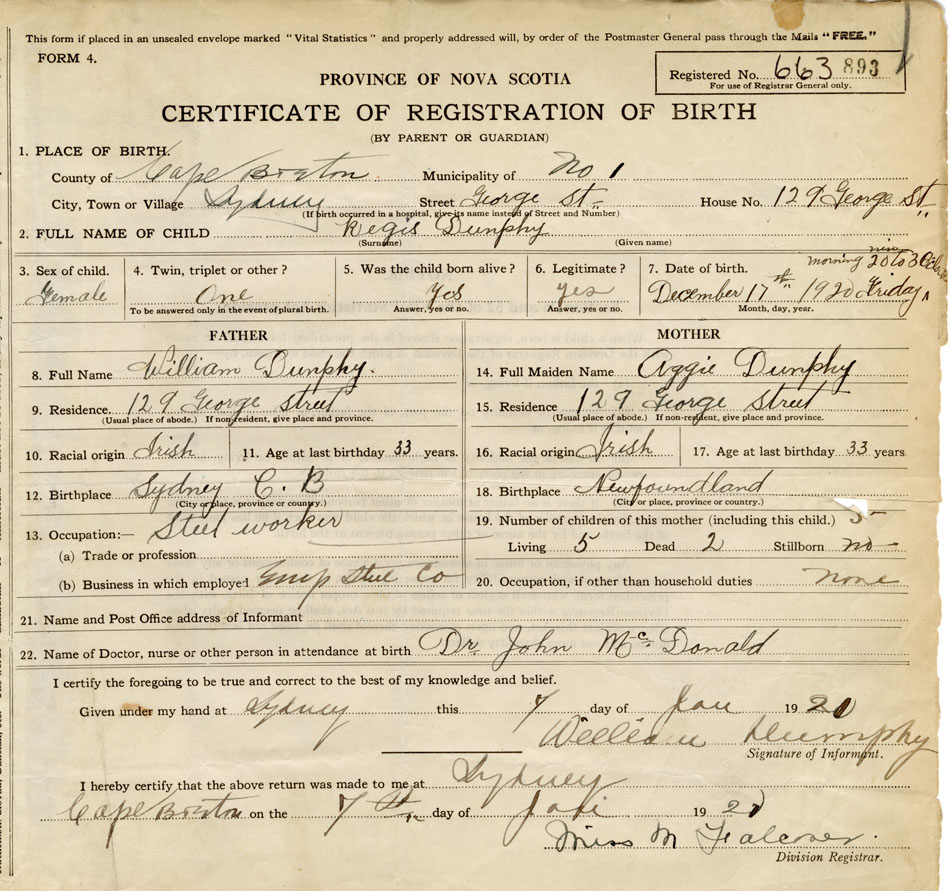 This form if placed in an unsealed envelope marked "Vital Statistics" and properly addressed will, by order of the Postmaster General pass through the Mails "FREE."
FORM 4.
Registered No. 663 893
For use of Registrar General only.
PROVINCE OF NOVA SCOTIA
CERTIFICATE OF REGISTRATION OF BIRTH
(BY PARENT OR GUARDIAN)
1. PLACE OF BIRTH.
County of Cape Breton Municipality of No 1
City, Town or Village Sydney Street George St. House No. 129 George St
(If birth occurred in a hospital, give its name instead of Street and Number)
2. FULL NAME OF CHILD Regis Dunphy
(Surname) (Given name)
3. Sex of child. 4. Twin, triplet or other? 5. Was the child born alive? 6. Legitimate? 7. Date of birth. morning 20 to 3
Female One Yes yes December 17 th 1920 Friday
To be answered only in the event of plural birth. Answer, yes or no. Answer, yes or no. Month, day, year.
FATHER MOTHER
8. Full Name William Dunphy. 14. Full Maiden Name Aggie Dunphy
9. Residence. 129 George Street 15. Residence 129 George Street
(Usual place of abode.) If non-resident, give place and province. (Usual place of abode.) If non-resident, give place and province.
10. Racial origin Irish 11. Age at last birthday 33 years. 16. Racial origin Irish 17. Age at last birthday 33 years
12. Birthplace Sydney C. B 18. Birthplace Newfoundland
(City or place, province or country.) (City or place, province or country.)
13. Occupation:— Steel worker 19. Number of children of this mother (including this child.) 5
(a) Trade or profession Living 5 Dead 2 Stillborn no
(b) Business in which employed Emp Steel Co 20. Occupation, if other than household duties none
21. Name and Post Office address of Informant
22. Name of Doctor, nurse or other person in attendance at birth Dr. John McDonald
I certify the foregoing to be true and correct to the best of my knowledge and belief.
Given under my hand at Sydney this 7 day of Jan 1921
William Dumphy
Signature of Informant.
I hereby certify that the above return was made to me at Sydney
Cape Breton on the 7 th. day of Jan 1921
Miss M Falconer.
Division Registrar.